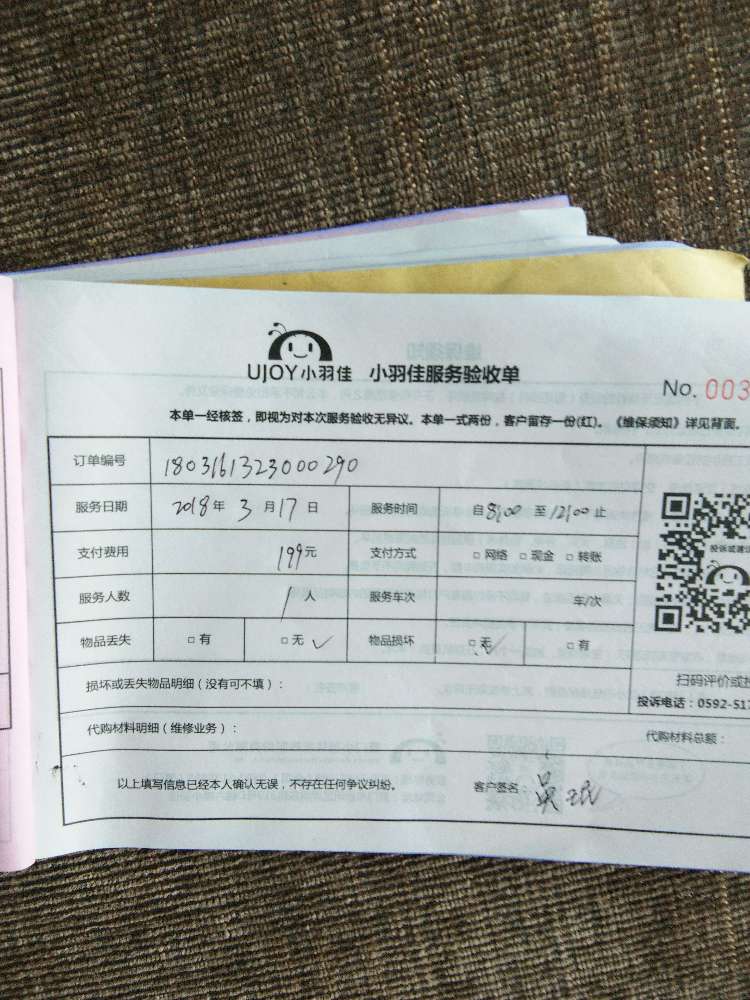 UJOY小羽佳 小羽佳服务验收单
No. 003
本单一经核签，即视为对本次服务验收无异议。本单一式两份，客户留存一份(红)。《维保须知》详见背面。
订单编号 1803161323000290
服务日期 2018年 3月17日 服务时间 自8:00至12:00止
支付费用 199元 支付方式 □网络 □现金 □转账
服务人数 1人 服务车次 车/次
物品丢失 □有 □无✓ 物品损坏 □无✓ □有
损坏或丢失物品明细（没有可不填）：
扫码评价或投
投诉电话：0592-517
代购材料明细（维修业务）： 代购材料总额：
以上填写信息已经本人确认无误，不存在任何争议纠纷。 客户签名：吴